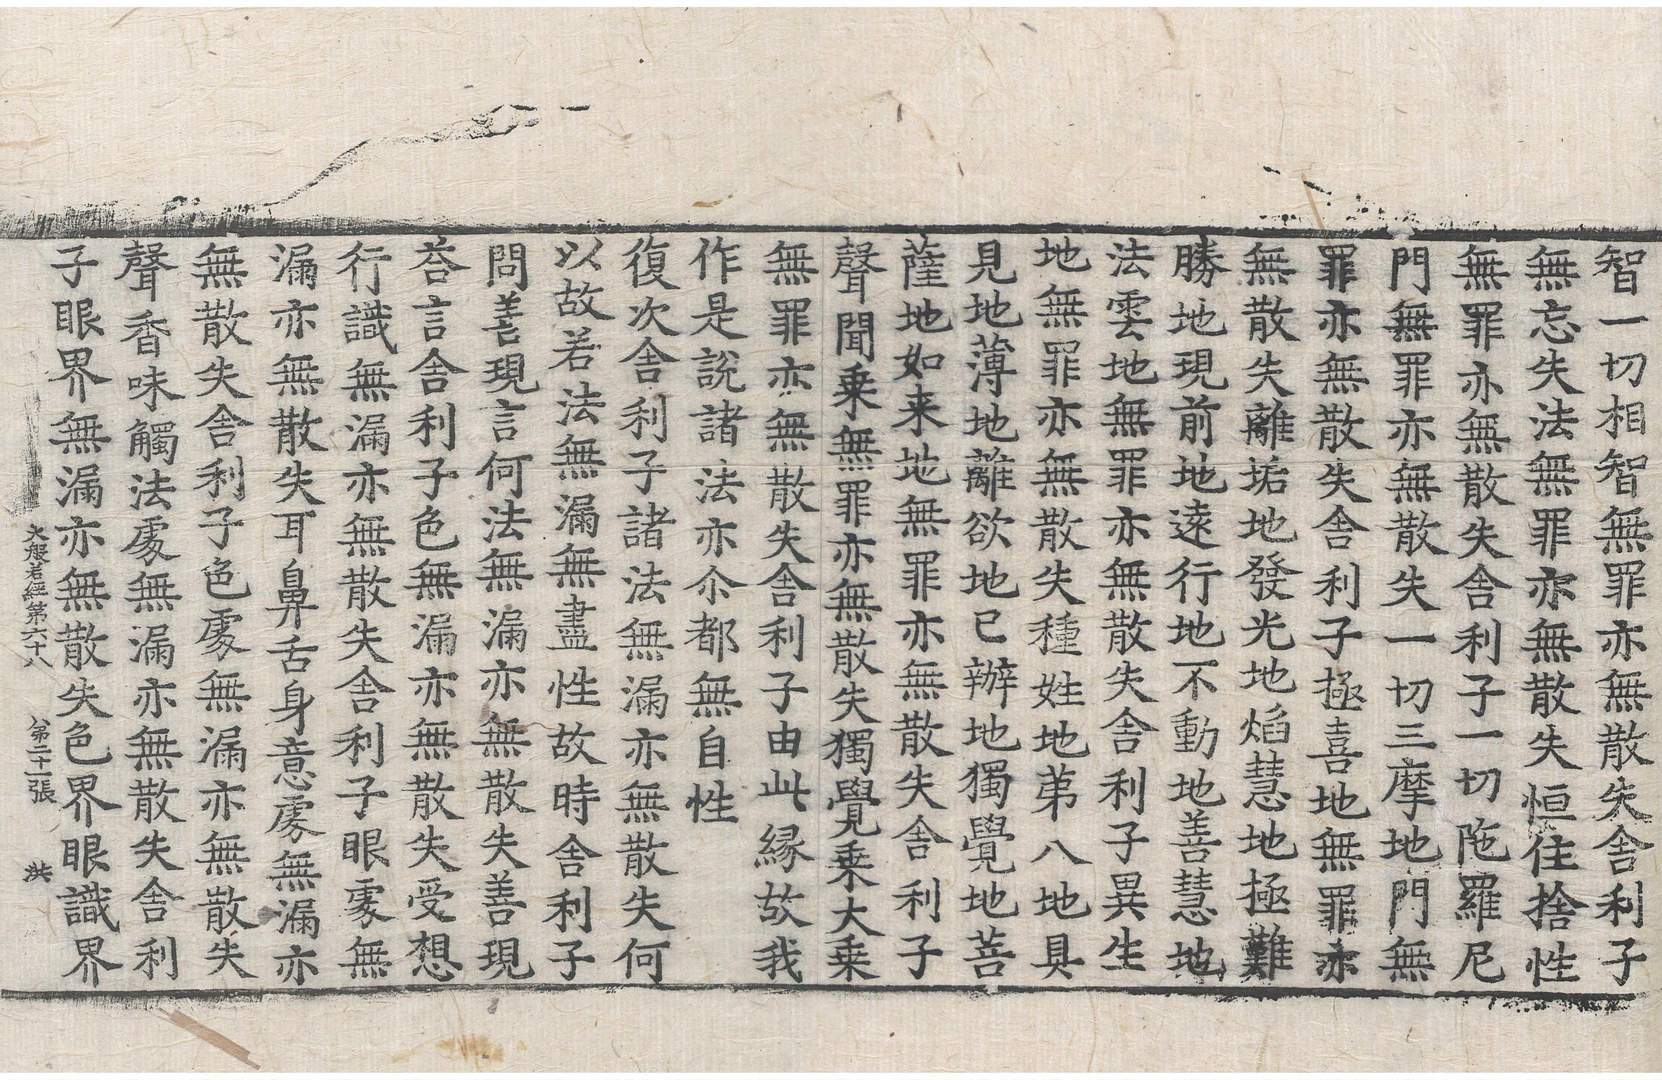 智一切相智無罪亦無散失舍利子
無忘失法無罪亦無散失恒住捨性
無罪亦無散失舍利子一切陁羅尼
門無罪亦無散失一切三摩地門無
罪亦無散失舍利子極喜地無罪亦
無散失離垢地發光地焰慧地極難
勝地現前地遠行地不動地善慧地
法雲地無罪亦無散失舍利子異生
地無罪亦無散失種姓地第八地具
見地薄地離欲地已辦地獨覺地菩
薩地如来地無罪亦無散失舍利子
聲聞乗無罪亦無散失獨覺乗大乗
無罪亦無散失舍利子由此縁故我
作是說諸法亦尒都無自性
復次舍利子諸法無漏亦無散失何
以故若法無漏無盡性故時舍利子
問善現言何法無漏亦無散失善現
荅言舍利子色無漏亦無散失受想
行識無漏亦無散失舍利子眼處無
漏亦無散失耳鼻舌身意處無漏亦
無散失舍利子色處無漏亦無散失
聲香味觸法處無漏亦無散失舍利
子眼界無漏亦無散失色界眼識界
大般若經第六十八 第二十一張 洪